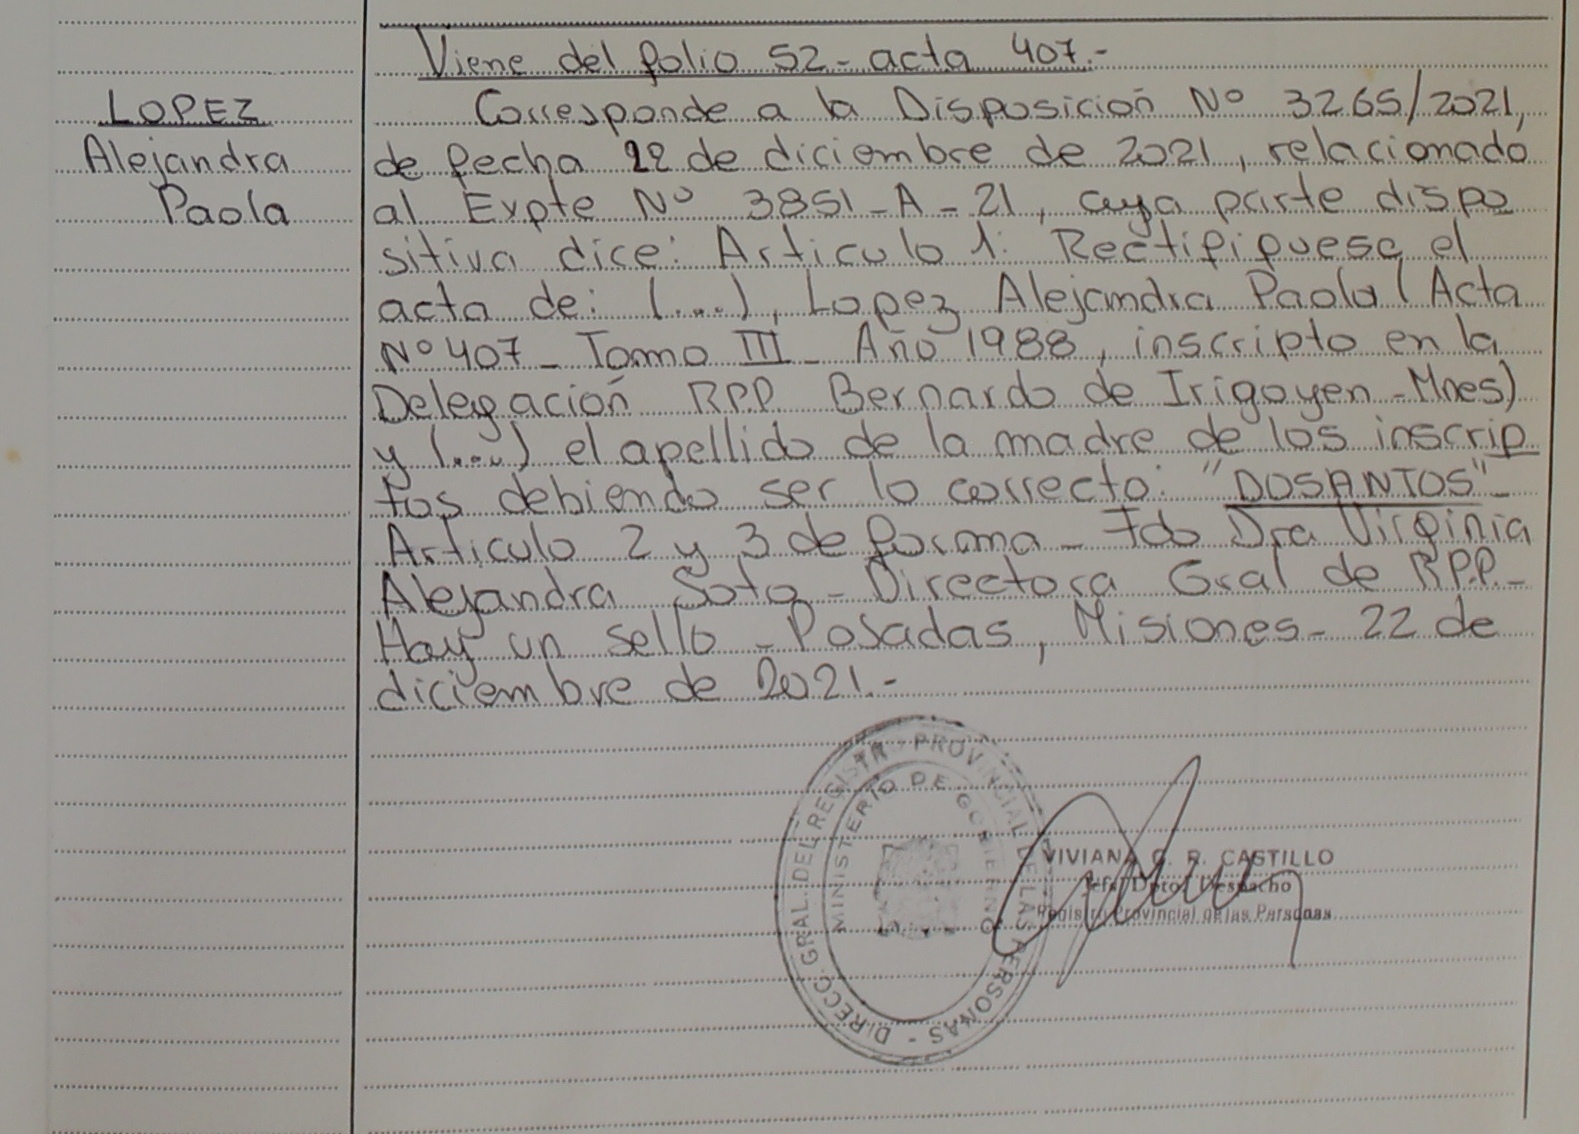 Viene del folio 52 - acta 407.-
LOPEZ
Alejandra
Paola
Corresponde a la Disposición Nº 3265/2021,
de fecha 22 de diciembre de 2021, relacionado
al Expte Nº 3851-A-21, cuya parte dispo
sitiva dice: Articulo 1: Rectifiquese el
acta de: (...), Lopez Alejandra Paola (Acta
Nº 407 - Tomo III - Año 1988, inscripto en la
Delegación RPP. Bernardo de Irigoyen - Mnes)
y (...) el apellido de la madre de los inscrip
tos debiendo ser lo correcto: "DOSANTOS"-
Articulo 2 y 3 de forma - Fdo Dra Virginia
Alejandra Soto - Directora Gral de RPP.-
Hay un sello - Posadas, Misiones - 22 de
diciembre de 2021.-
DIRECC. GRAL. DEL REGISTRO PROVINCIAL DE LAS PERSONAS -
MINISTERIO DE GOBIERNO
VIVIANA G. R. CASTILLO
Jefa Dpto. Despacho
Registro Provincial de las Personas